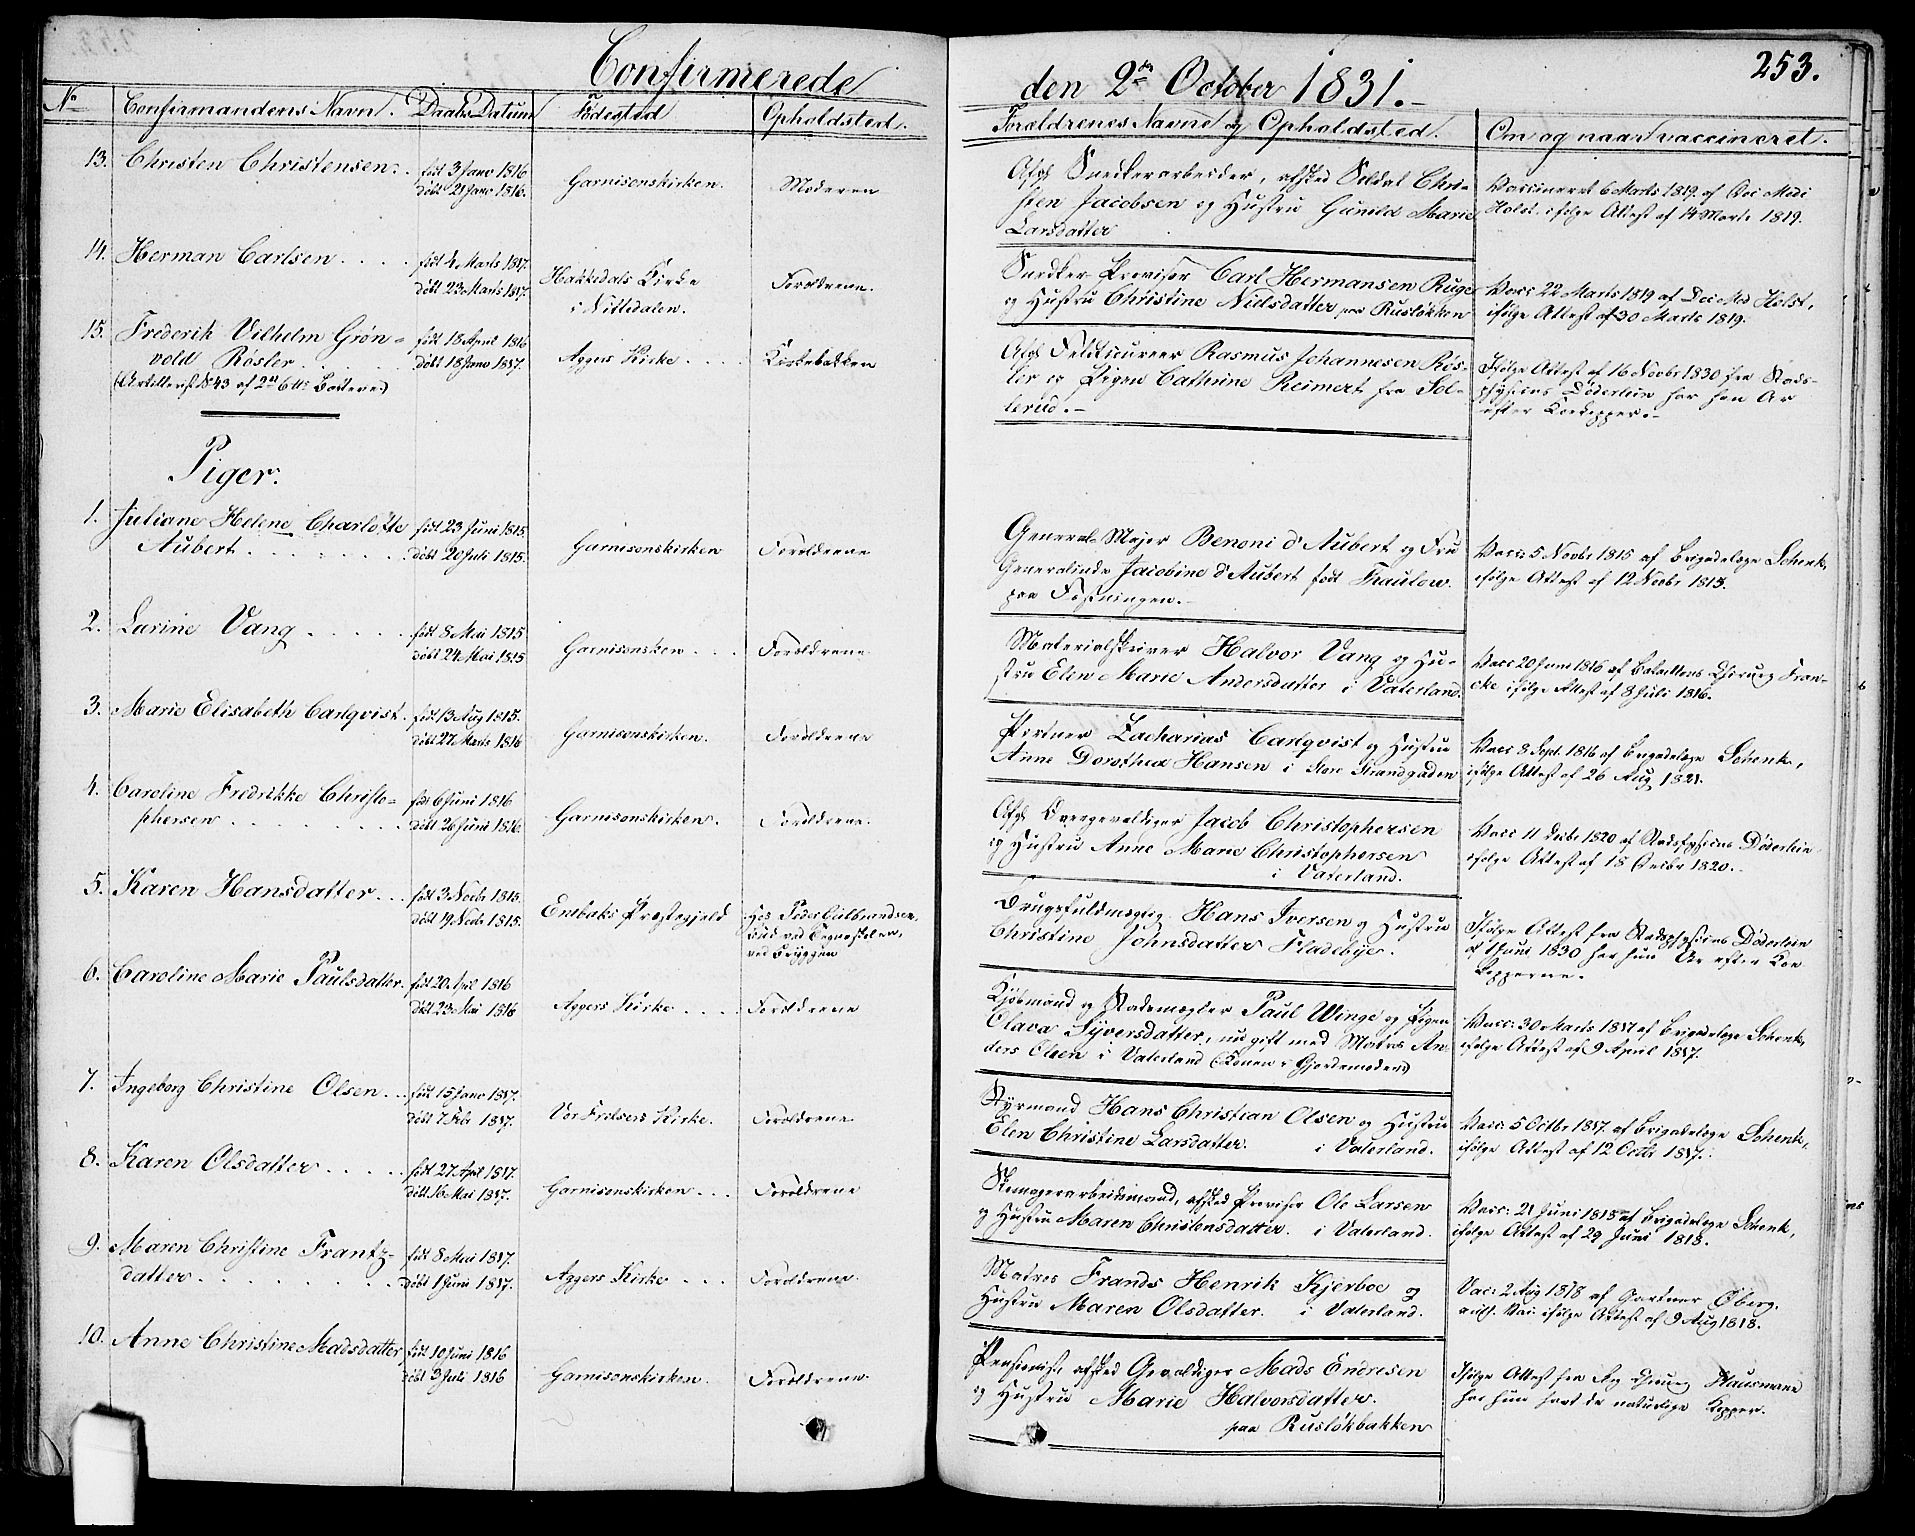 253.
Confirmerede
den 2den October 1831.
No Confirmandens Navn. Daabs Datum Fødested Opholdsted.
Forældrenes Navne og Opholdsted. Om og naar vaccineret.
13. Christen Christensen. født 3 Janv 1816
døbt 21 Janv 1816. Garnisonskirken. Moderen
Afg Snedkerarbeider, afsked Soldat Chri-
sten Jacobsen og Hustru Gunild Marie
Larsdatter
Vaccineret 6 Marts 1819. af Doc Medi
Holst. ifølge Attest af 14 Marts 1819.
14. Herman Carlsen . . . . født 4 Marts 1817.
døbt 23 Marts 1817. Hakkedals Kirke
i Nittedalen. Forældrene.
Snedker Provisor Carl Hermansen Ruge
og Hustru Christine Nielsdatter paa Rusløkken
Vacc 22 Marts 1819 af Doc Med Holst,
ifølge Attest af 30 Marts 1819.
15. Frederik Vilhelm Grøn-
vold Røsler . . . . . født 18 April 1816
døbt 18 Janv 1817. Aggers Kirke . . . . Kirkebakken
(Artillerist No 43 af 2det 6 Batterie)
Afg Feldtscureer Rasmus Johannesen Røs-
ler og Pigen Cathrine Reimert fra Sol-
lerud.
Ifølge Attest af 16 Novbr 1830 fra Stads-
physicus Døderlein har han Ar
efter Kokopper.
Piger.
1. Juliane Helene Charlotte
Aubert . . . . . . . født 23 Juni 1815.
døbt 20 Juli 1815. Garnisonskirken Forældrene
General-Major Benoni d'Aubert og Fru
Generalinde Jacobine d'Aubert født Thaulow
paa Fæstningen.
Vacc: 5 Novbr 1815 af Brigadelæge Schenk,
ifølge Attest af 12 Novbr 1815.
2. Larine Vang . . . . . født 8 Mai 1815
døbt 24 Mai 1815 Garnisonsken . . . Forældrene
Materialskriver Halvor Vang og Hu-
stru Elen Marie Andersdatter i Vaterland.
Vacc 20 Juni 1816 af Bataillons Chirurg Fran-
cke ifølge Attest af 8 Juli 1816.
3. Marie Elisabeth Carlqvist. født 13 Aug 1815.
døbt 27 Marts 1816 Garnisonskirken. Forældrene
Portner Zacharias Carlqvist og Hustru
Anne Dorothea Hansen i Store Strandgaden
Vacc 8 Sept. 1816 af Brigadelæge Schenk,
ifølge Attest af 26 Aug 1821.
4. Caroline Fredrikke Christo-
phersen . . . . . . . . født 6 Juni 1816
døbt 26 Juni 1816. Garnisonskirken. Forældrene.
Afg Jacob Christophersen
og Hustru Anne Marie Christophersen
i Vaterland.
Vacc 11 Decbr 1820 af Stadsfysicus Døderlein
ifølge Attest af 18 Decbr 1820.
5. Karen Hansdatter . . . født 3 Novbr 1815.
døbt 19 Novbr 1815. Enebaks Præstegjeld Hos Peder Gulbrandsen,
ved
ved Bryggen
Brugsfuldmægtig Hans Iversen og Hustru
Christine Johnsdatter Fladebye.
Ifølge Attest fra Stadsphysicus Døderlein
af 1830 har hun Ar efter Ko
kopperne.
6. Caroline Marie Paulsdatter. født 20 April 1816
døbt 23 Mai 1816 Aggers Kirke . . . . Forældrene
Kjøbmand og Stadsmægler Paul Winge og Pigen
Olava Syversdatter, nu gift med Matros An
ders Olsen i Vaterland (Konen er Gjordemoder)
Vacc: 30 Marts 1817 af Brigadelæge Schenk,
ifølge Attest af 9 April 1817.
7. Ingeborg Christine Olsen . . . født 15 Janv 1817.
døbt 7 Febr 1817. Vor Frelsers Kirke. Forældrene
Styrmand Hans Christian Olsen og Hustru
Elen Christine Larsdatter. i Vaterland.
Vacc: 5 Octbr 1817. af Brigadelæge Schenk,
ifølge Attest af 12 Octbr 1817.
8. Karen Olsdatter . . . . . født 27 April 1817.
døbt 16 Mai 1817. Garnisonskirken . . . Forældrene
Skomagerarbeidsmand, afsked Provisor Ole Larsen
og Hustru Maren Christensdatter. i Vaterland.
Vacc: 21 Juni 1818 af Brigadelæge Schenk,
ifølge Attest af 29 Juni 1818.
9. Maren Christine Frantz-
datter . . . . . . . . født 8 Mai 1817.
døbt 1 Juni 1817. Aggers Kirke . . . Forældrene.
Matros Frands Henrik Kjerboe og
Hustru Maren Olsdatter. i Vaterland.
Vac: 2 Aug 1818 af Gartner Øberg.
auth. Vac. ifølge Attest af 9 Aug 1818.
10. Anne Christine Madsdatter født 10 Juni 1816
døbt 3 Juli 1816 Garnisonskirken. Forældrene.
Pensionist, afsked Gevaldiger Mads Endresen
og Hustru Marie Halvorsdatter.
paa Rusløkbakken
Ifølge Attest fra Reg Chirurg
har hun havt de naturlige Kopper.